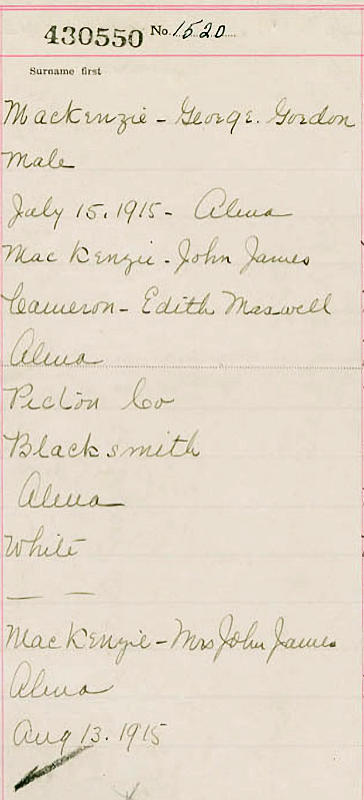 430550 No. 1520
Surname first
MacKenzie - George. Gordon
Male
July 15, 1915 - Alma
MacKenzie - John James
Cameron - Edith Maxwell
Alma
Pictou Co
Blacksmith
Alma
White
— —
MacKenzie - Mrs John James
Alma
Aug 13. 1915